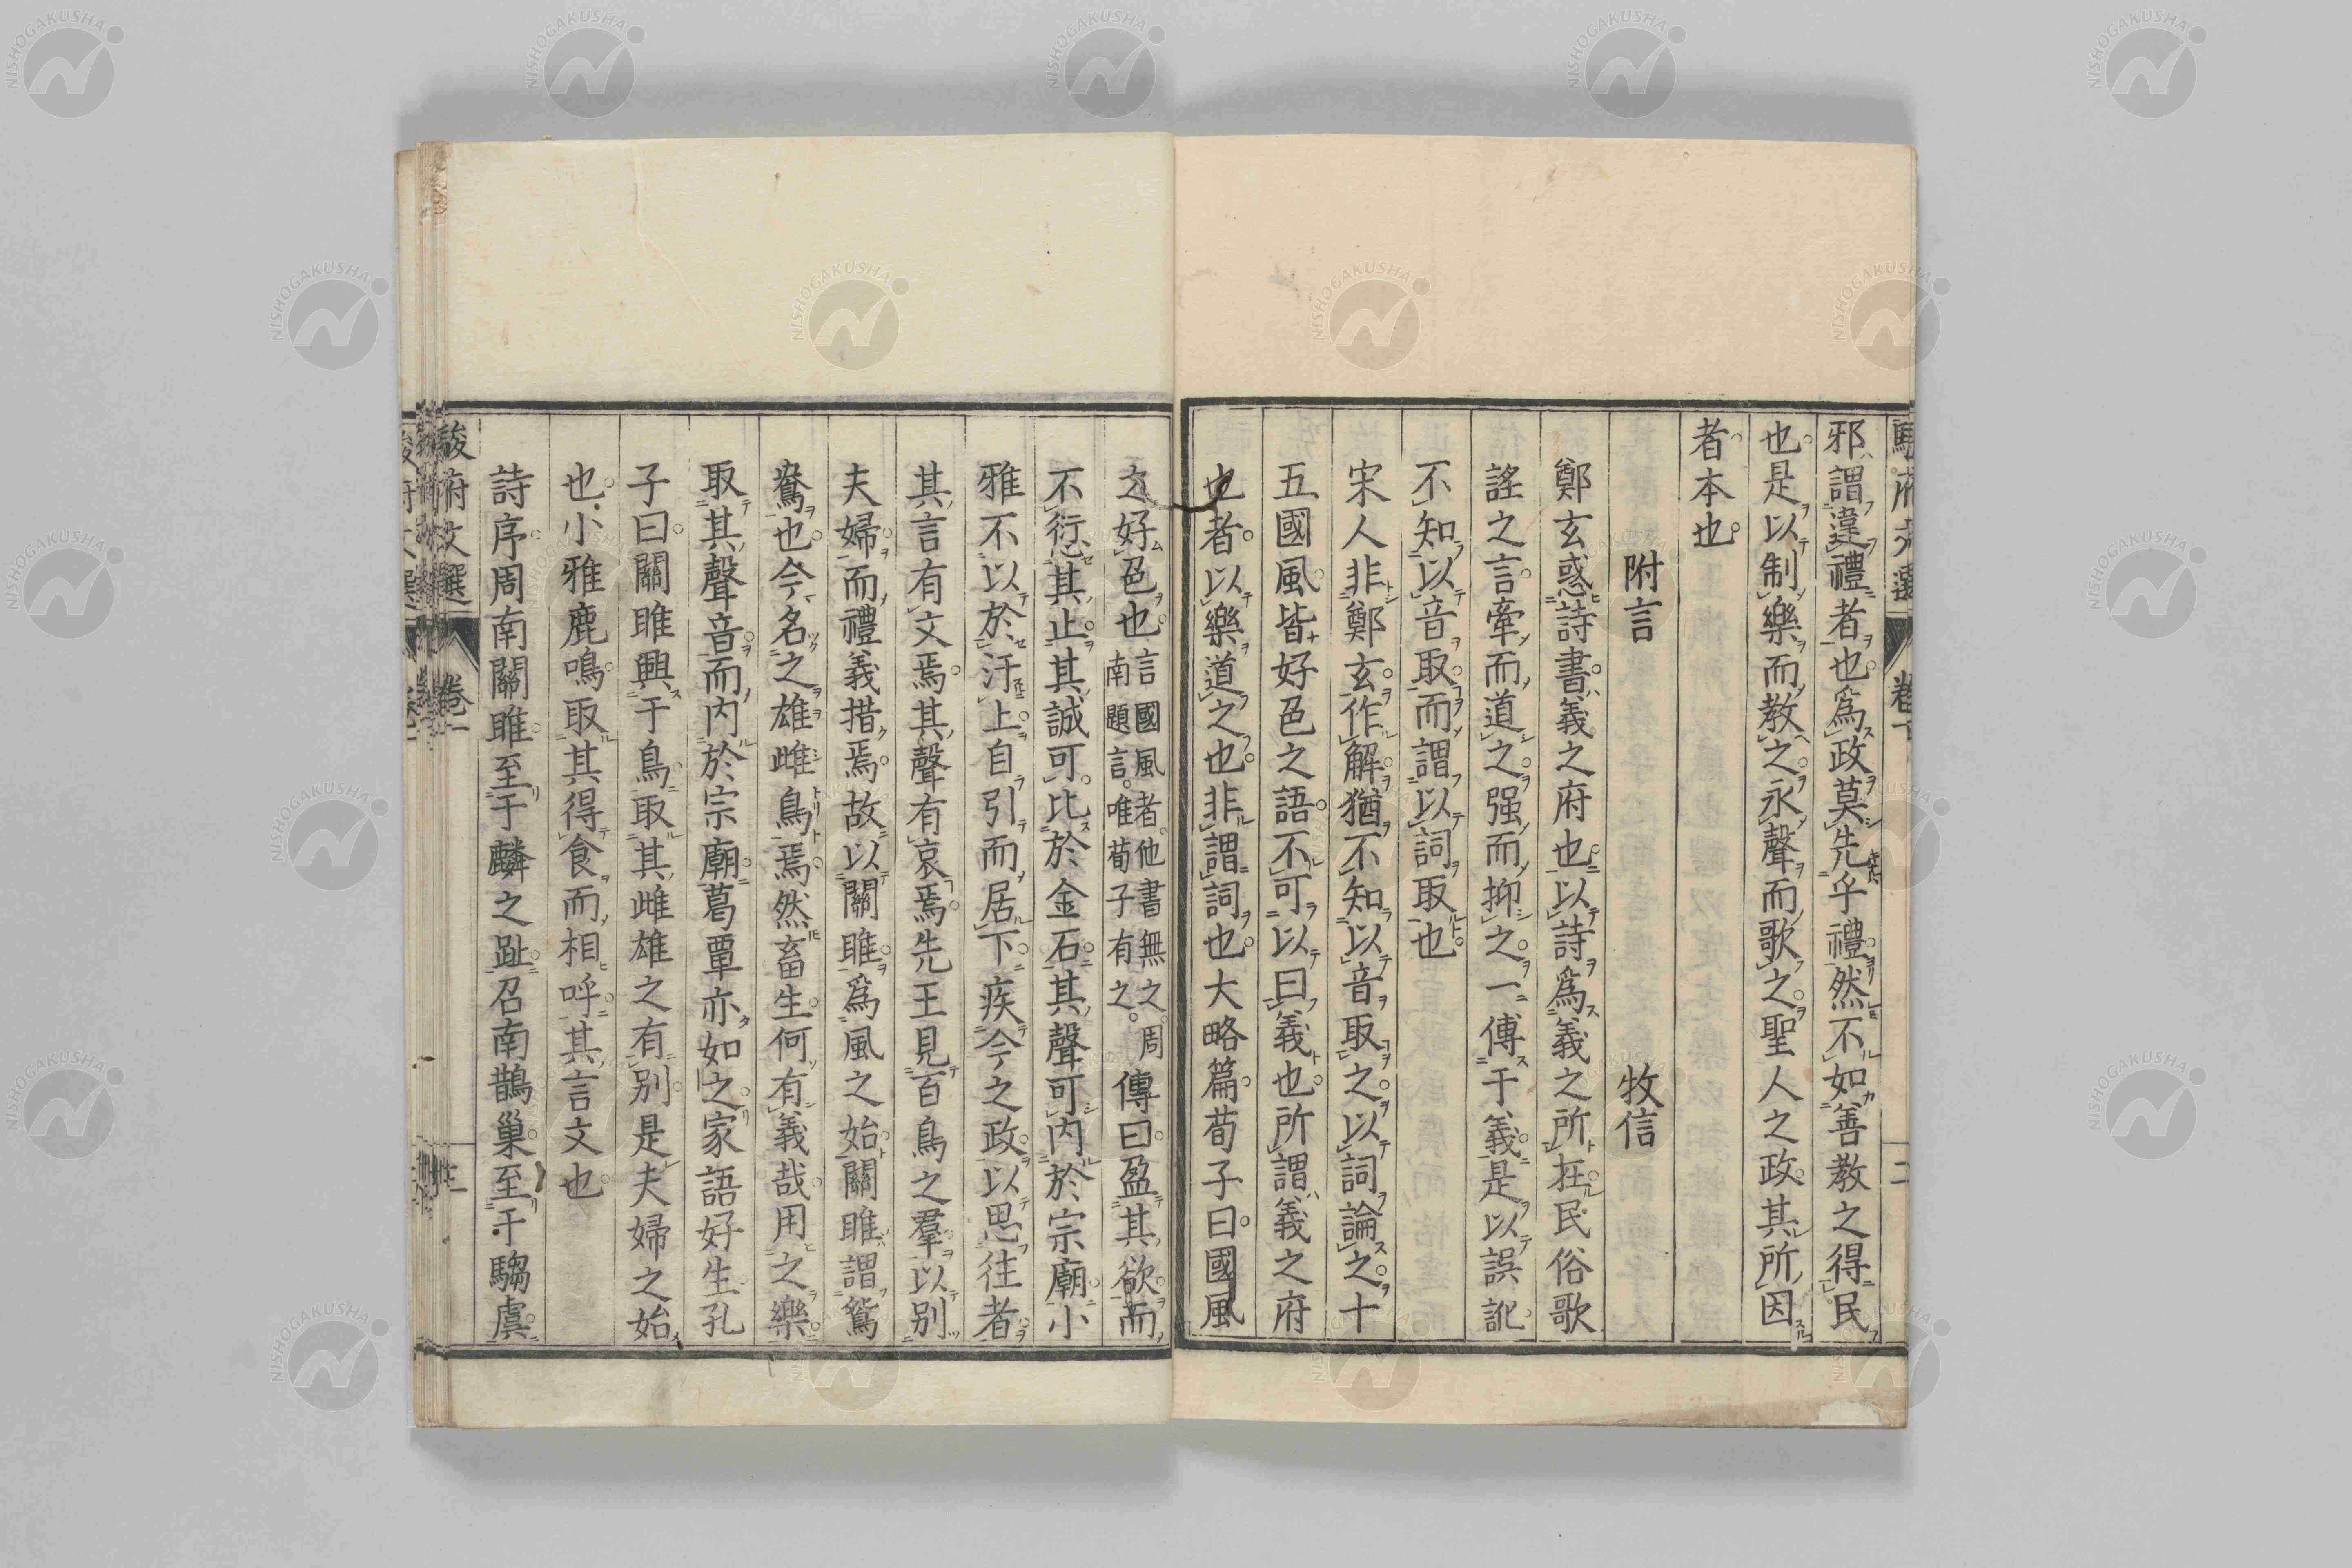 邪謂違禮者也爲政莫先乎禮然不如善教之得民
也是以制樂而教之永聲而歌之聖人之政其所因
者本也
附言 牧信
鄭玄惑詩書義之府也以詩爲義之所在民俗歌
謠之言牽而道之强而抑之一傅于義是以誤訛
不知以音取而謂以詞取也
宋人非鄭玄作解猶不知以音取之以詞論之十
五國風皆好色之語不可以曰義也所謂義之府
也者以樂道之也非謂詞也大略篇荀子曰國風
之好色也言國風者他書無之周南題言唯荀子有之傳曰盈其欲而
不愆其止其誠可比於金石其聲可內於宗廟小
雅不以於汙上自引而居下疾今之政以思往者
其言有文焉其聲有哀焉先王見百鳥之羣以別
夫婦而禮義措焉故以關雎爲風之始關雎謂鴛
鴦也今名之雄雌鳥焉然畜生何有義哉用之樂
取其聲音而內於宗廟葛覃亦如之家語好生孔
子曰關雎興于鳥取其雌雄之有別是夫婦之始
也小雅鹿鳴取其得食而相呼其言文也
詩序周南關雎至于麟之趾召南鵲巢至于騶虞
駿府文選 卷二
NISHOGAKUSHA